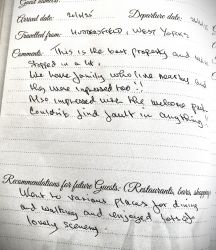 Guest name(s):
Arrival date: Departure date:
Travelled from: HUDDERSFIELD, WEST YORKS
Comments: This is the best property and we've
stopped in a lot.
We have family who live nearby and
they were impressed too!!
Also impressed with the welcome pack.
Couldn't find fault in anything!!
Recommendations for future Guests: (Restaurants, bars, shopping
Went to various places for dining
and walking and enjoyed lots of
lovely scenery.